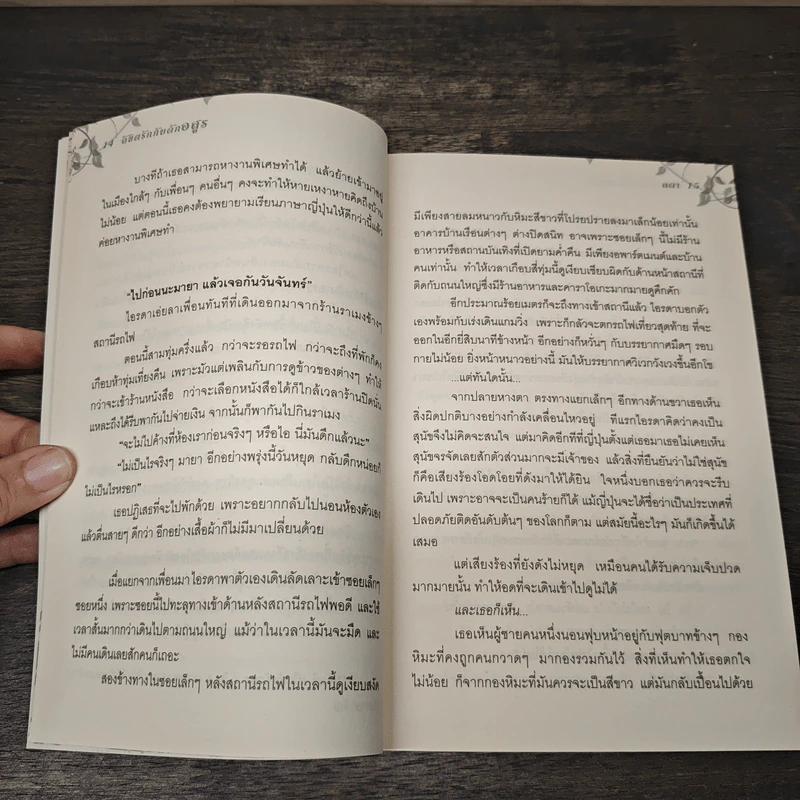 14 ลิขิตรักกับดักอสูร
บางทีถ้าเธอสามารถหางานพิเศษทำได้ แล้วย้ายเข้ามาอยู่
ในเมืองใกล้ๆ กับเพื่อนๆ คนอื่นๆ คงจะทำให้หายเหงาหายคิดถึงบ้าน
ไม่น้อย แต่ตอนนี้เธอคงต้องพยายามเรียนภาษาญี่ปุ่นให้ดีกว่านี้แล้ว
ค่อยหางานพิเศษทำ
“ไปก่อนนะมายา แล้วเจอกันวันจันทร์”
ไอรดาเอ่ยลาเพื่อนทันทีที่เดินออกมาจากร้านราเมงข้างๆ
สถานีรถไฟ
ตอนนี้สามทุ่มครึ่งแล้ว กว่าจะรอรถไฟ กว่าจะถึงที่พักก็คง
เกือบห้าทุ่มเที่ยงคืน เพราะมัวแต่เพลินกับการดูข้าวของต่างๆ ทำให้
กว่าจะเข้าร้านหนังสือ กว่าจะเลือกหนังสือได้ก็ใกล้เวลาร้านปิดนั่น
แหละถึงได้รีบพากันไปจ่ายเงิน จากนั้นก็พากันไปกินราเมง
“จะไม่ไปค้างที่ห้องเราก่อนจริงๆ หรือไอ นี่มันดึกแล้วนะ”
“ไม่เป็นไรจริงๆ มายา อีกอย่างพรุ่งนี้วันหยุด กลับดึกหน่อยก็
ไม่เป็นไรหรอก”
เธอปฏิเสธที่จะไปพักด้วย เพราะอยากกลับไปนอนห้องตัวเอง
แล้วตื่นสายๆ ดีกว่า อีกอย่างเสื้อผ้าก็ไม่มีมาเปลี่ยนด้วย
เมื่อแยกจากเพื่อนมาไอรดาพาตัวเองเดินลัดเลาะเข้าซอยเล็กๆ
ซอยหนึ่ง เพราะซอยนี้ไปทะลุทางเข้าด้านหลังสถานีรถไฟพอดี และใช้
เวลาสั้นมากกว่าเดินไปตามถนนใหญ่ แม้ว่าในเวลานี้มันจะมืด และ
ไม่มีคนเดินเลยสักคนก็เถอะ
สองข้างทางในซอยเล็กๆ หลังสถานีรถไฟในเวลานี้ดูเงียบสงัด
ลลา 15
มีเพียงสายลมหนาวกับหิมะสีขาวที่โปรยปรายลงมาเล็กน้อยเท่านั้น
อาคารบ้านเรือนต่างๆ ต่างปิดสนิท อาจเพราะซอยเล็กๆ นี้ไม่มีร้าน
อาหารหรือสถานบันเทิงที่เปิดยามค่ำคืน มีเพียงอพาร์ตเมนต์และบ้าน
คนเท่านั้น ทำให้เวลาเกือบสี่ทุ่มนี้ดูเงียบเชียบผิดกับด้านหน้าสถานีที่
ติดกับถนนใหญ่ซึ่งมีร้านอาหารและคาราโอเกะมากมายดูคึกคัก
อีกประมาณร้อยเมตรก็จะถึงทางเข้าสถานีแล้ว ไอรดาบอกตัว
เองพร้อมกับเร่งเดินแกมวิ่ง เพราะก็กลัวจะตกรถไฟเที่ยวสุดท้าย ที่จะ
ออกในอีกยี่สิบนาทีข้างหน้า อีกอย่างก็หวั่นๆ กับบรรยากาศมืดๆ รอบ
กายไม่น้อย ยิ่งหน้าหนาวอย่างนี้ มันให้บรรยากาศวิเวกวังเวงขึ้นอีกโข
...แต่ทันใดนั้น...
จากปลายหางตา ตรงทางแยกเล็กๆ อีกทางด้านขวาเธอเห็น
สิ่งผิดปกติบางอย่างกำลังเคลื่อนไหวอยู่ ทีแรกไอรดาคิดว่าคงเป็น
สุนัขจึงไม่คิดจะสนใจ แต่มาคิดอีกทีที่ญี่ปุ่นตั้งแต่เธอมาเธอไม่เคยเห็น
สุนัขจรจัดเลยสักตัวส่วนมากจะมีเจ้าของ แล้วสิ่งที่ยืนยันว่าไม่ใช่สุนัข
ก็คือเสียงร้องโอดโอยที่ดังมาให้ได้ยิน ใจหนึ่งบอกเธอว่าควรจะรีบ
เดินไป เพราะอาจจะเป็นคนร้ายก็ได้ แม้ญี่ปุ่นจะได้ชื่อว่าเป็นประเทศที่
ปลอดภัยติดอันดับต้นๆ ของโลกก็ตาม แต่สมัยนี้อะไรๆ มันก็เกิดขึ้นได้
เสมอ
แต่เสียงร้องที่ยังดังไม่หยุด เหมือนคนได้รับความเจ็บปวด
มากมายนั้น ทำให้อดที่จะเดินเข้าไปดูไม่ได้
และเธอก็เห็น...
เธอเห็นผู้ชายคนหนึ่งนอนฟุบหน้าอยู่กับฟุตบาทข้างๆ กอง
หิมะที่คงถูกคนกวาดๆ มากองรวมกันไว้ สิ่งที่เห็นทำให้เธอตกใจ
ไม่น้อย ก็จากกองหิมะที่มันควรจะเป็นสีขาว แต่มันกลับเปื้อนไปด้วย